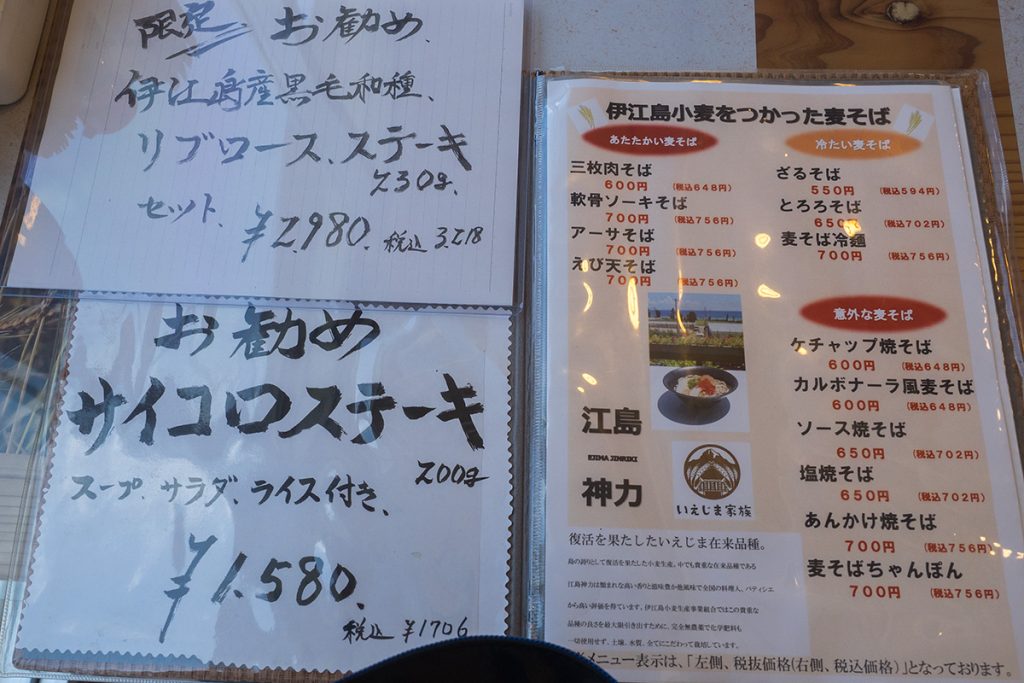 限定 お勧め、
伊江島産黒毛和種、
リブロース、ステーキ
230g.
セット、
¥2,980. 税込 3.218
お勧め
サイコロステーキ
200g
スープ、サラダ、ライス付き、
¥1.580.
税込 ¥1706
伊江島小麦をつかった麦そば
あたたかい麦そば
三枚肉そば
600円 (税込648円)
軟骨ソーキそば
700円 (税込756円)
アーサそば
700円 (税込756円)
えび天そば
700円 (税込756円)
冷たい麦そば
ざるそば
550円 (税込594円)
とろろそば
650 (税込702円)
麦そば冷麺
700円 (税込756円)
意外な麦そば
ケチャップ焼そば
600円 (税込648円)
カルボナーラ風麦そば
600円 (税込648円)
ソース焼そば
650円 (税込702円)
塩焼そば
650円 (税込702円)
あんかけ焼そば
700円 (税込756円)
麦そばちゃんぽん
700円 (税込756円)
江島
EJIMA JINRIKI
神力
いえじま家族
復活を果たしたいえじま在来品種。
島の誇りとして復活を果たした小麦生産。中でも貴重な在来品種である
江島神力は類まれな高い香りと滋味豊か他風味で全国の料理人、パティシエ
から高い評価を得ています。伊江島小麦生産事業組合ではこの貴重な
品種の良さを最大限引き出すために、完全無農薬で化学肥料も
一切使用せず、土壌、水質、全てにこだわって栽培しています。
メニュー表示は、「左側、税抜価格(右側、税込価格)」となっております。